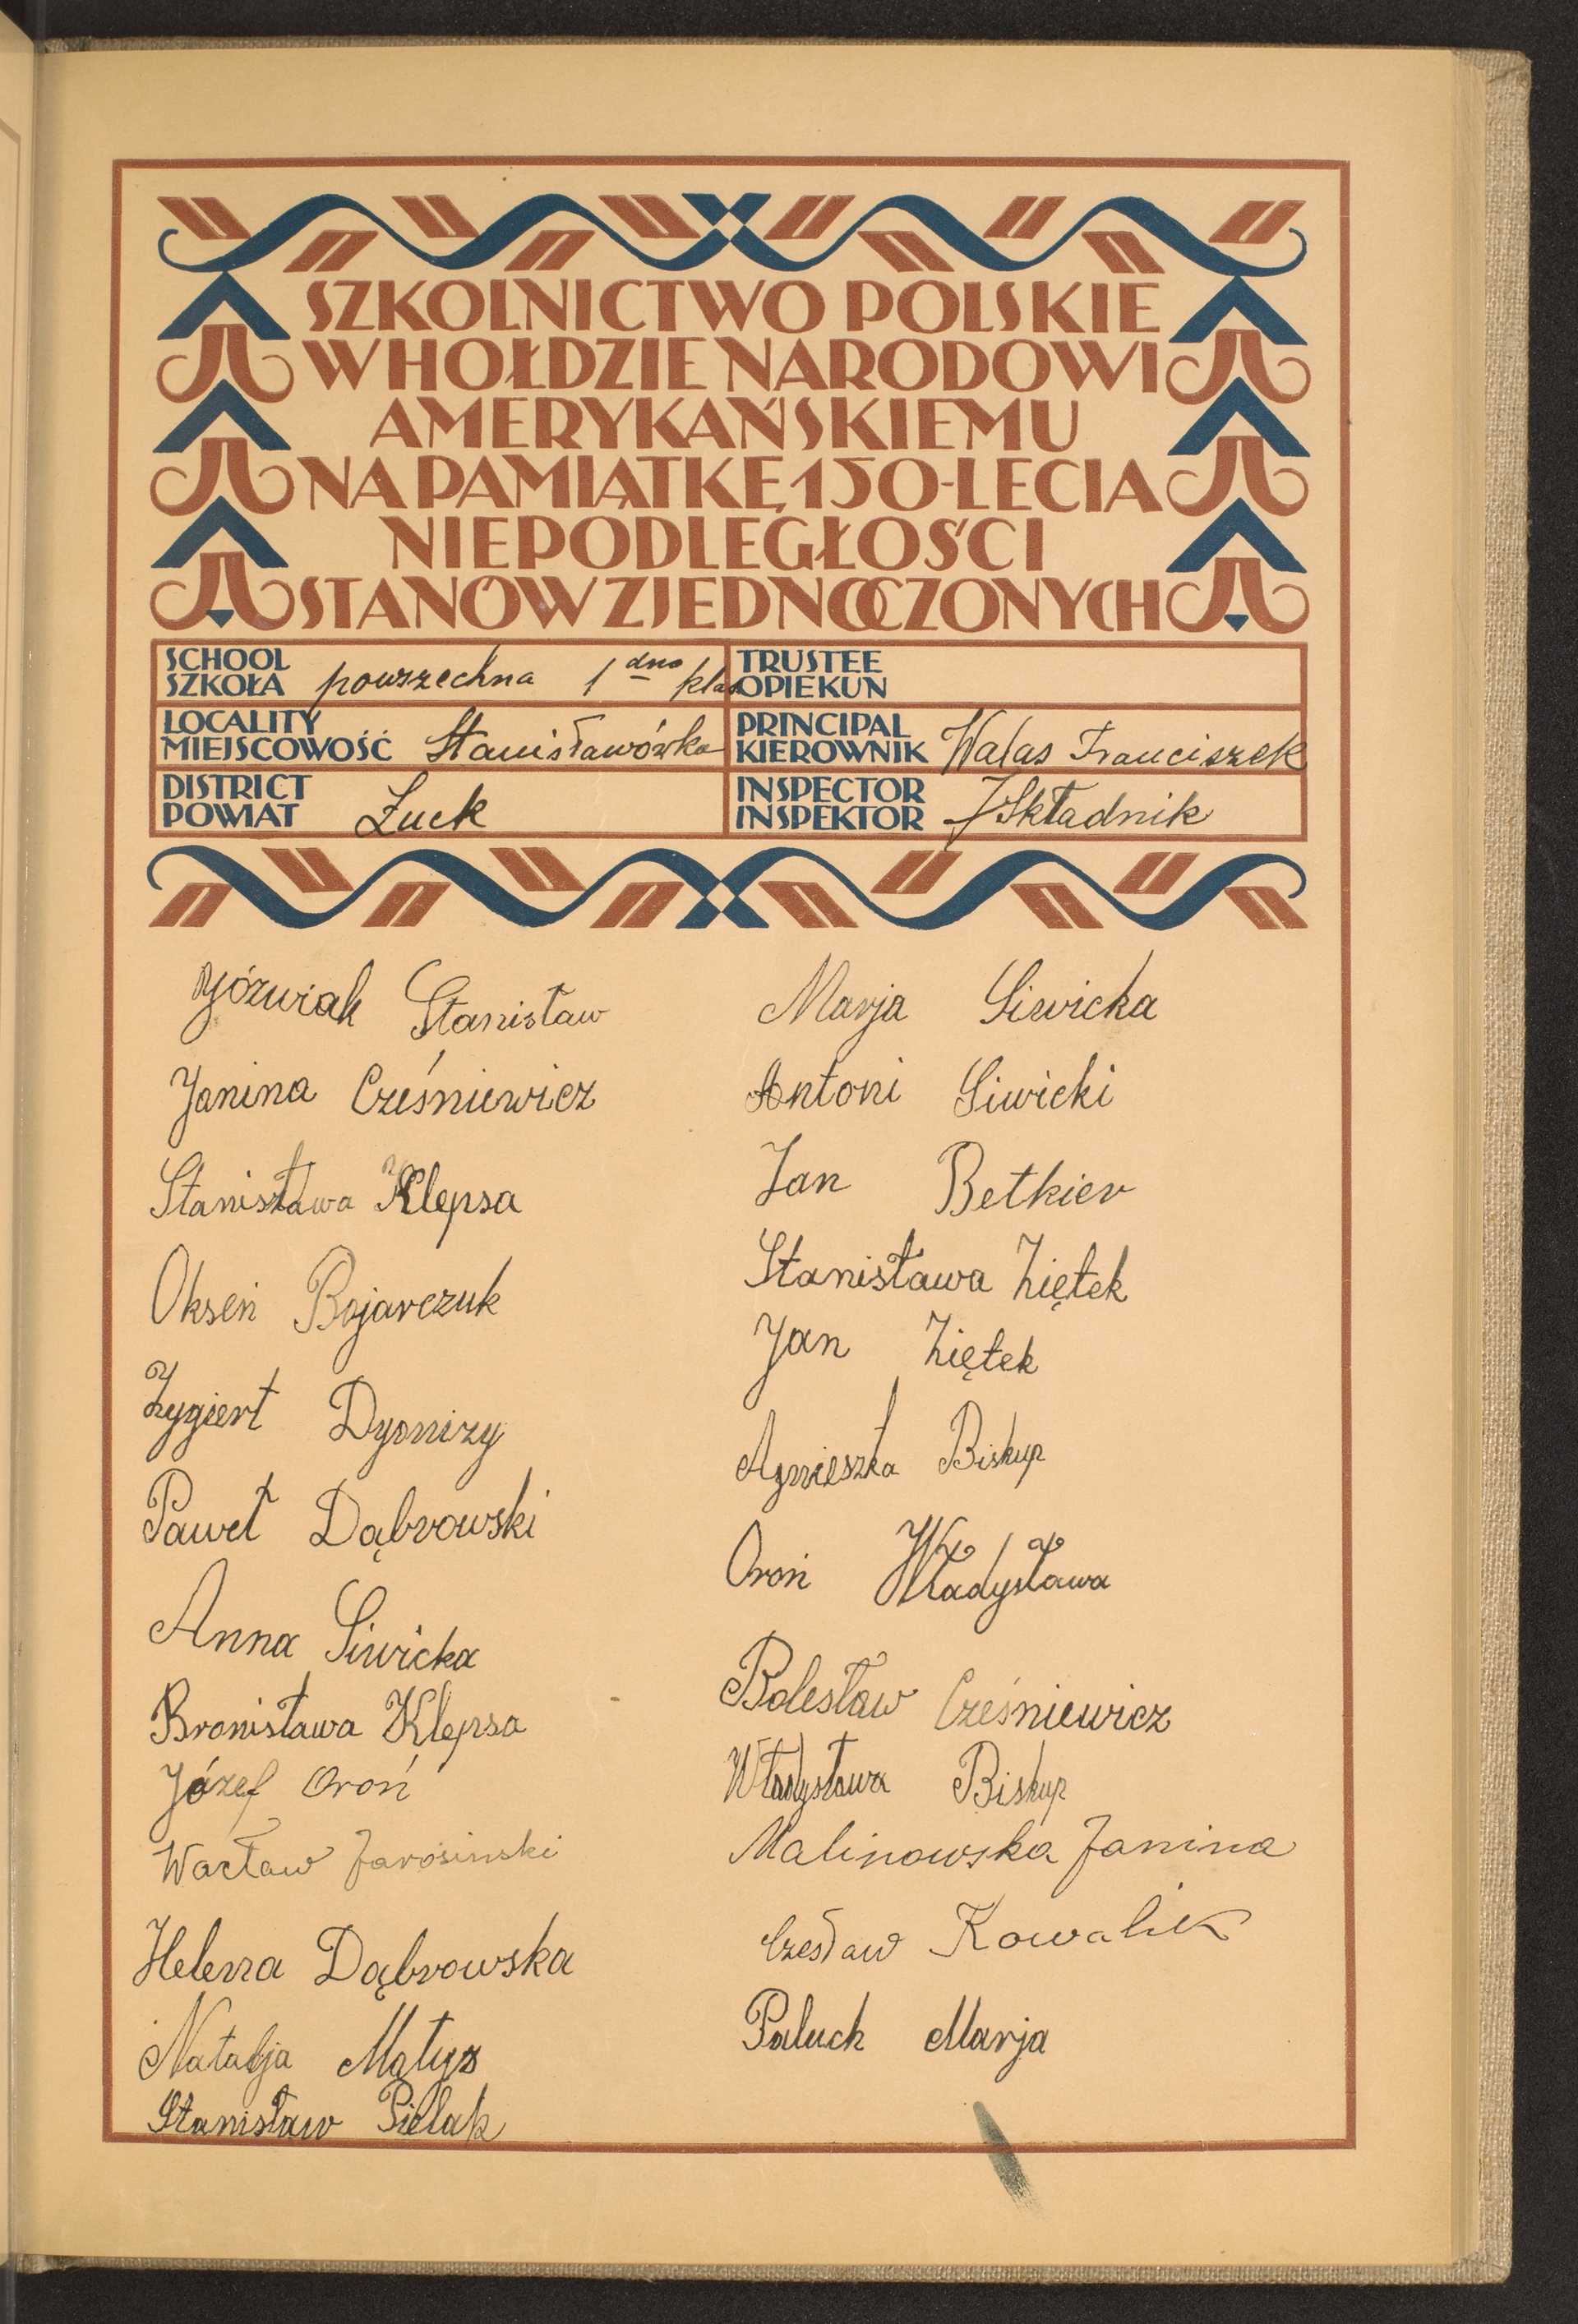 SZKOLNICTWO POLSKIE
W HOŁDZIE NARODOWI
AMERYKAŃSKIEMU
NA PAMIĄTKĘ 150-LECIA
NIEPODLEGŁOŚCI
STANÓW ZJEDNOCZONYCH
SCHOOL
SZKOŁA powszechna 1 dno klas
TRUSTEE
OPIEKUN
LOCALITY
MIEJSCOWOŚĆ Stanisławówka
PRINCIPAL
KIEROWNIK Walas Franciszek
DISTRICT
POWIAT Łuck
INSPECTOR
INSPEKTOR J Składnik
Józwiak Stanisław
Janina Cześniewicz
Stanisława Klepsa
Okseń Bojarczuk
Zygiert Dyonizy
Paweł Dąbrowski
Anna Siwicka
Bronisława Klepsa
Józef Oroń
Wacław Jarosinski
Helena Dąbrowska
Natalja Matys
Stanisław Pielak
Marja Siwicka
Antoni Siwicki
Jan Betkier
Stanisława Ziętek
Jan Ziętek
Agnieszka Biskup
Oroń Władysława
Bolesław Cześniewicz
Władysława Biskup
Malinowska Janina
Czesław Kowalik
Paluch Marja